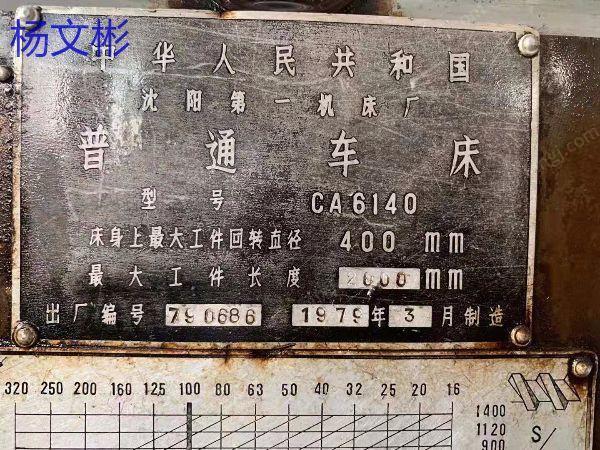 杨文彬
中华人民共和国
沈阳第一机床厂
普通车床
型号 CA6140
床身上最大工件回转直径 400 mm
最大工件长度 2000 mm
出厂编号 790686 1979年3月制造
320 250 200 160 125 100 80 63 50 40 32 25 20 16
1400
1120
900
S/